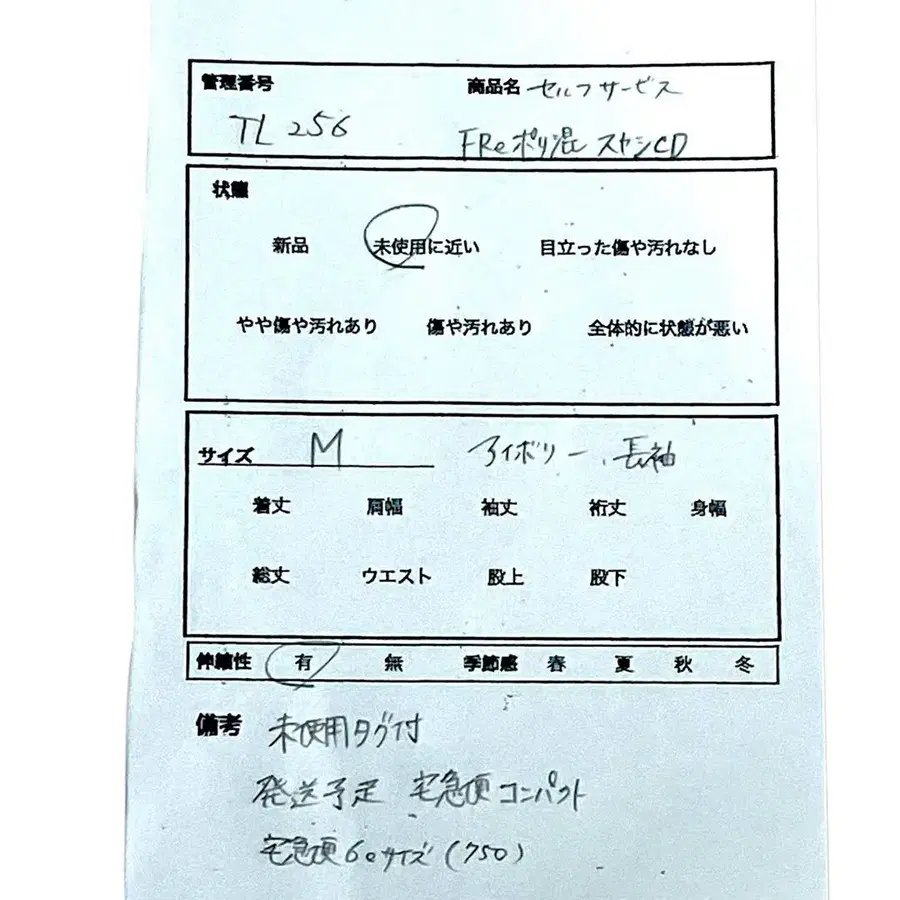 管理番号 商品名 セルフサービス
TL 256 FRe ポリ混 スヤシCD
状態
新品 未使用に近い 目立った傷や汚れなし
やや傷や汚れあり 傷や汚れあり 全体的に状態が悪い
サイズ M アイボリー、長袖
着丈 肩幅 袖丈 裄丈 身幅
総丈 ウエスト 股上 股下
伸縮性 有 無 季節感 春 夏 秋 冬
備考 未使用タグ付
発送予定 宅急便コンパクト
宅急便60サイズ(750)